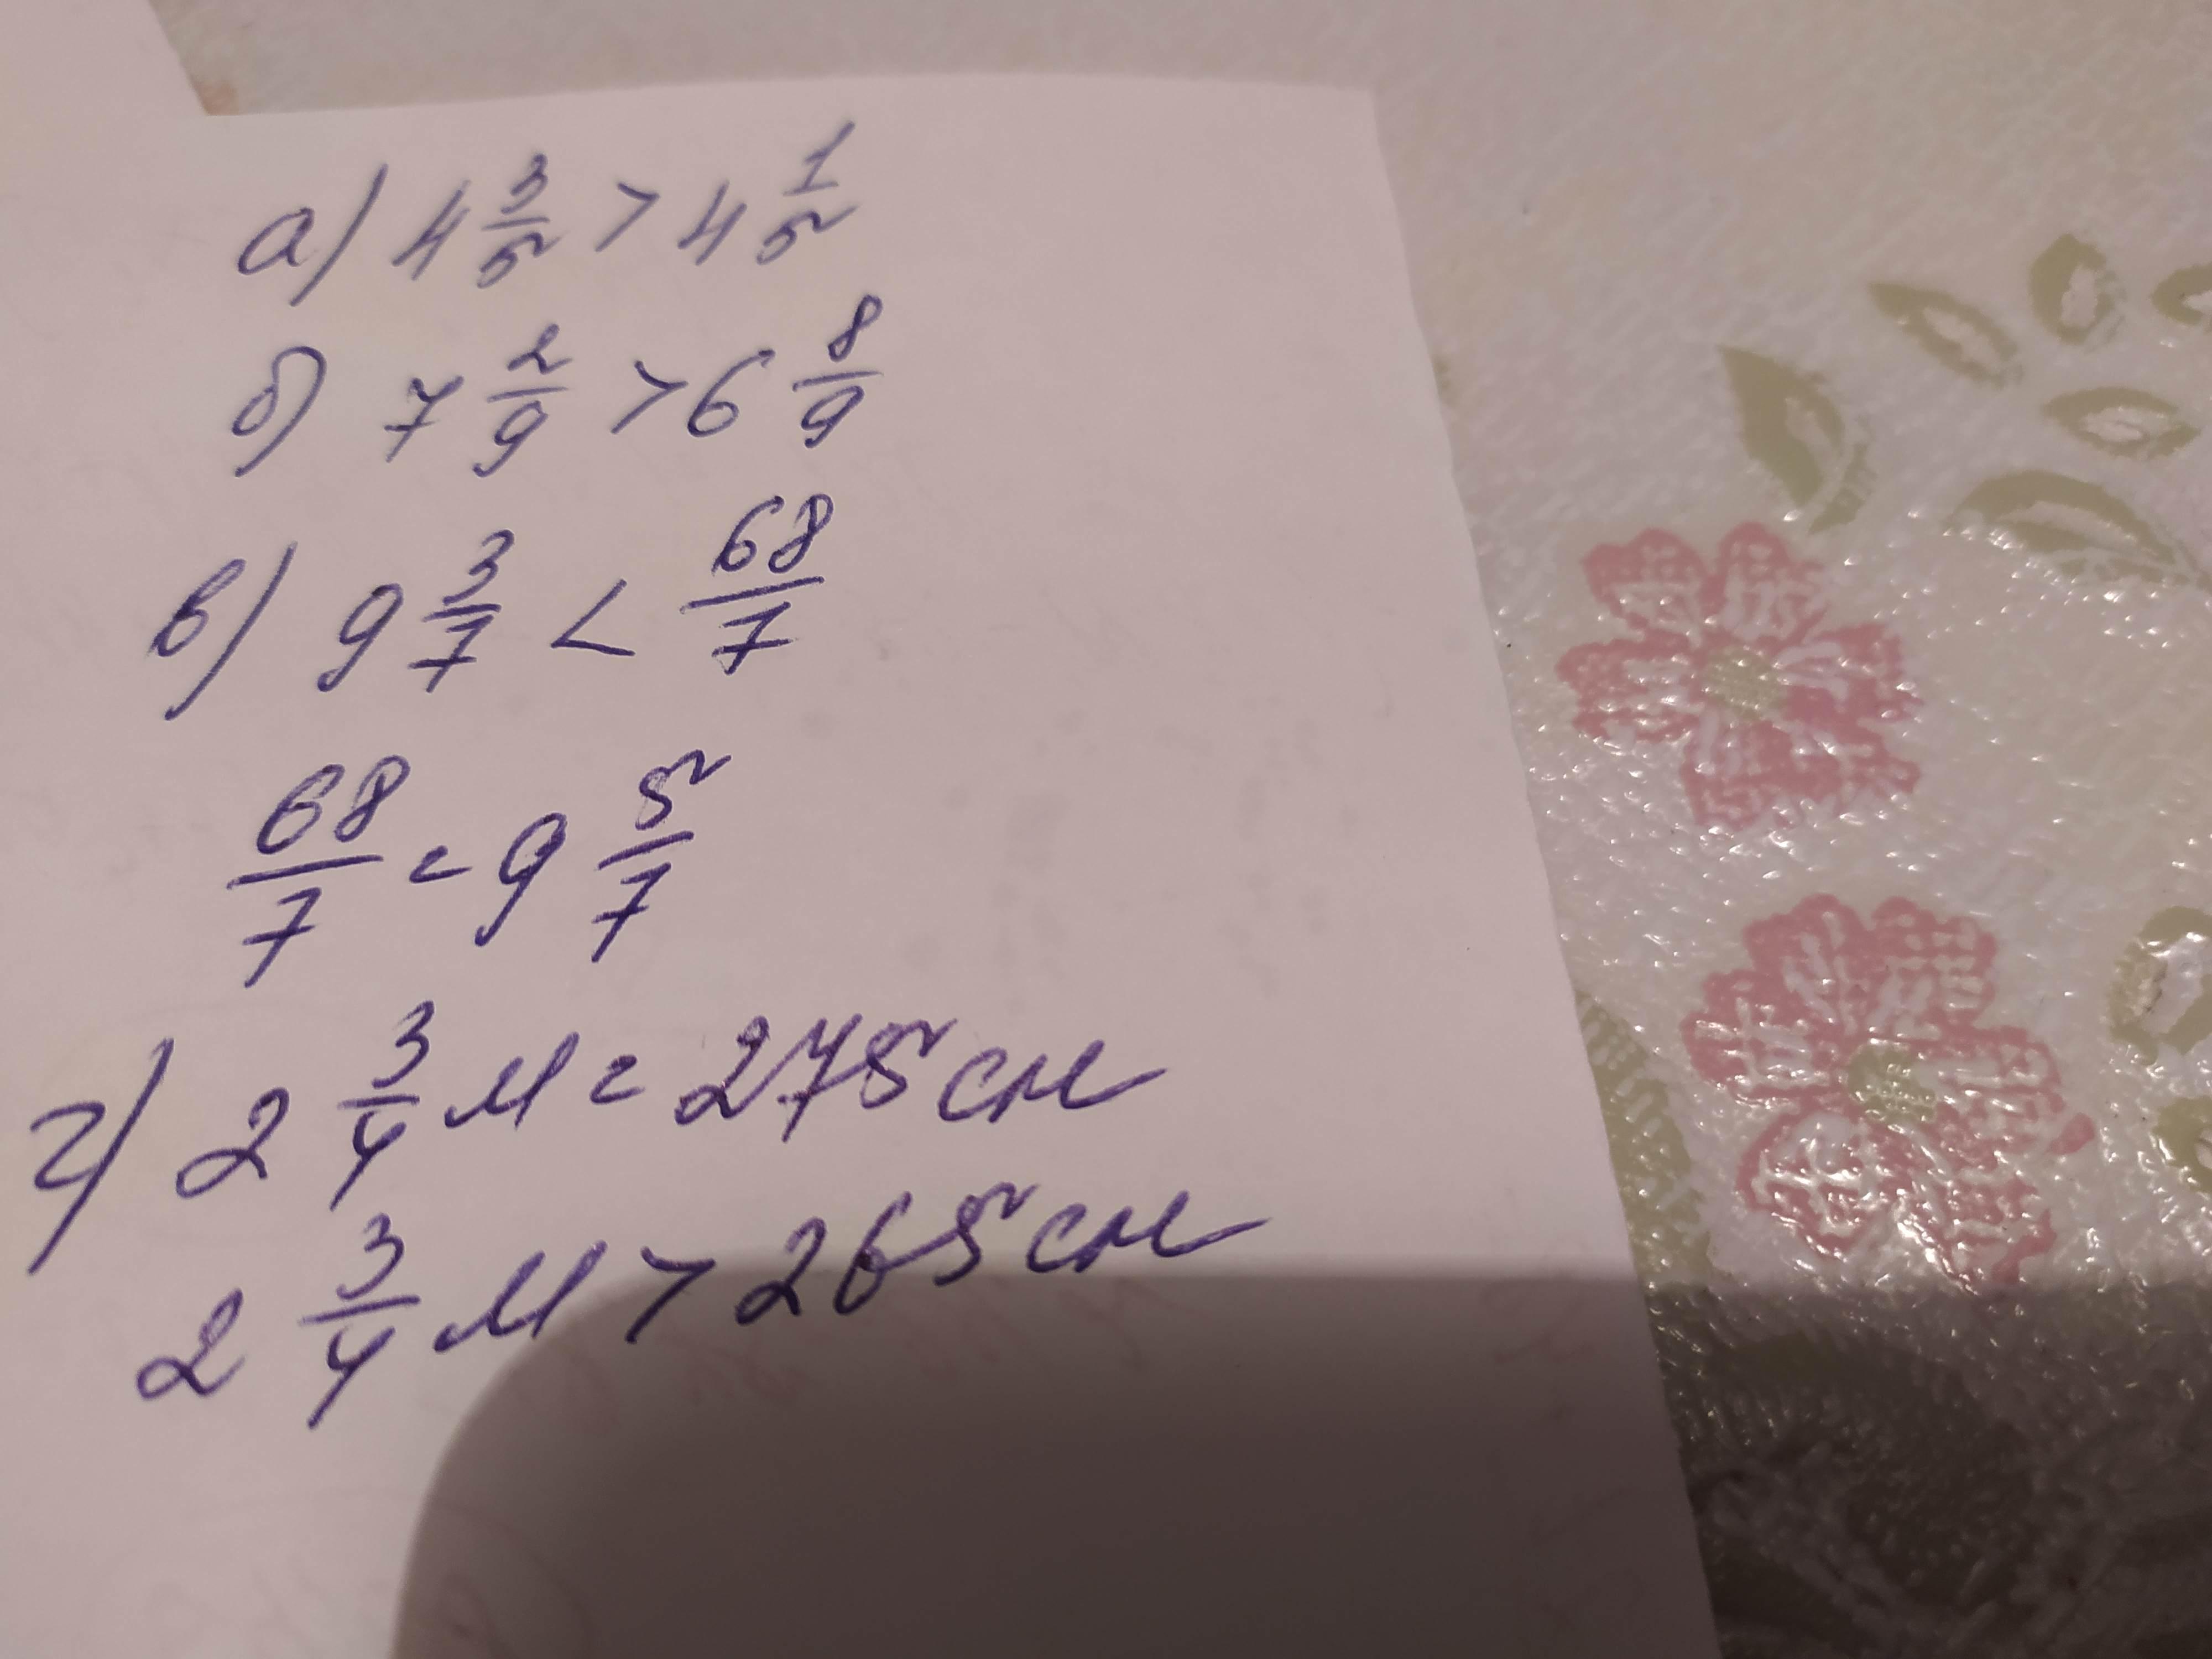 а) 4 3/5 > 4 1/5
б) 7 2/9 > 6 8/9
в) 9 3/7 < 68/7
68/7 = 9 5/7
г) 2 3/4 м = 275 см
2 3/4 м > 265 см